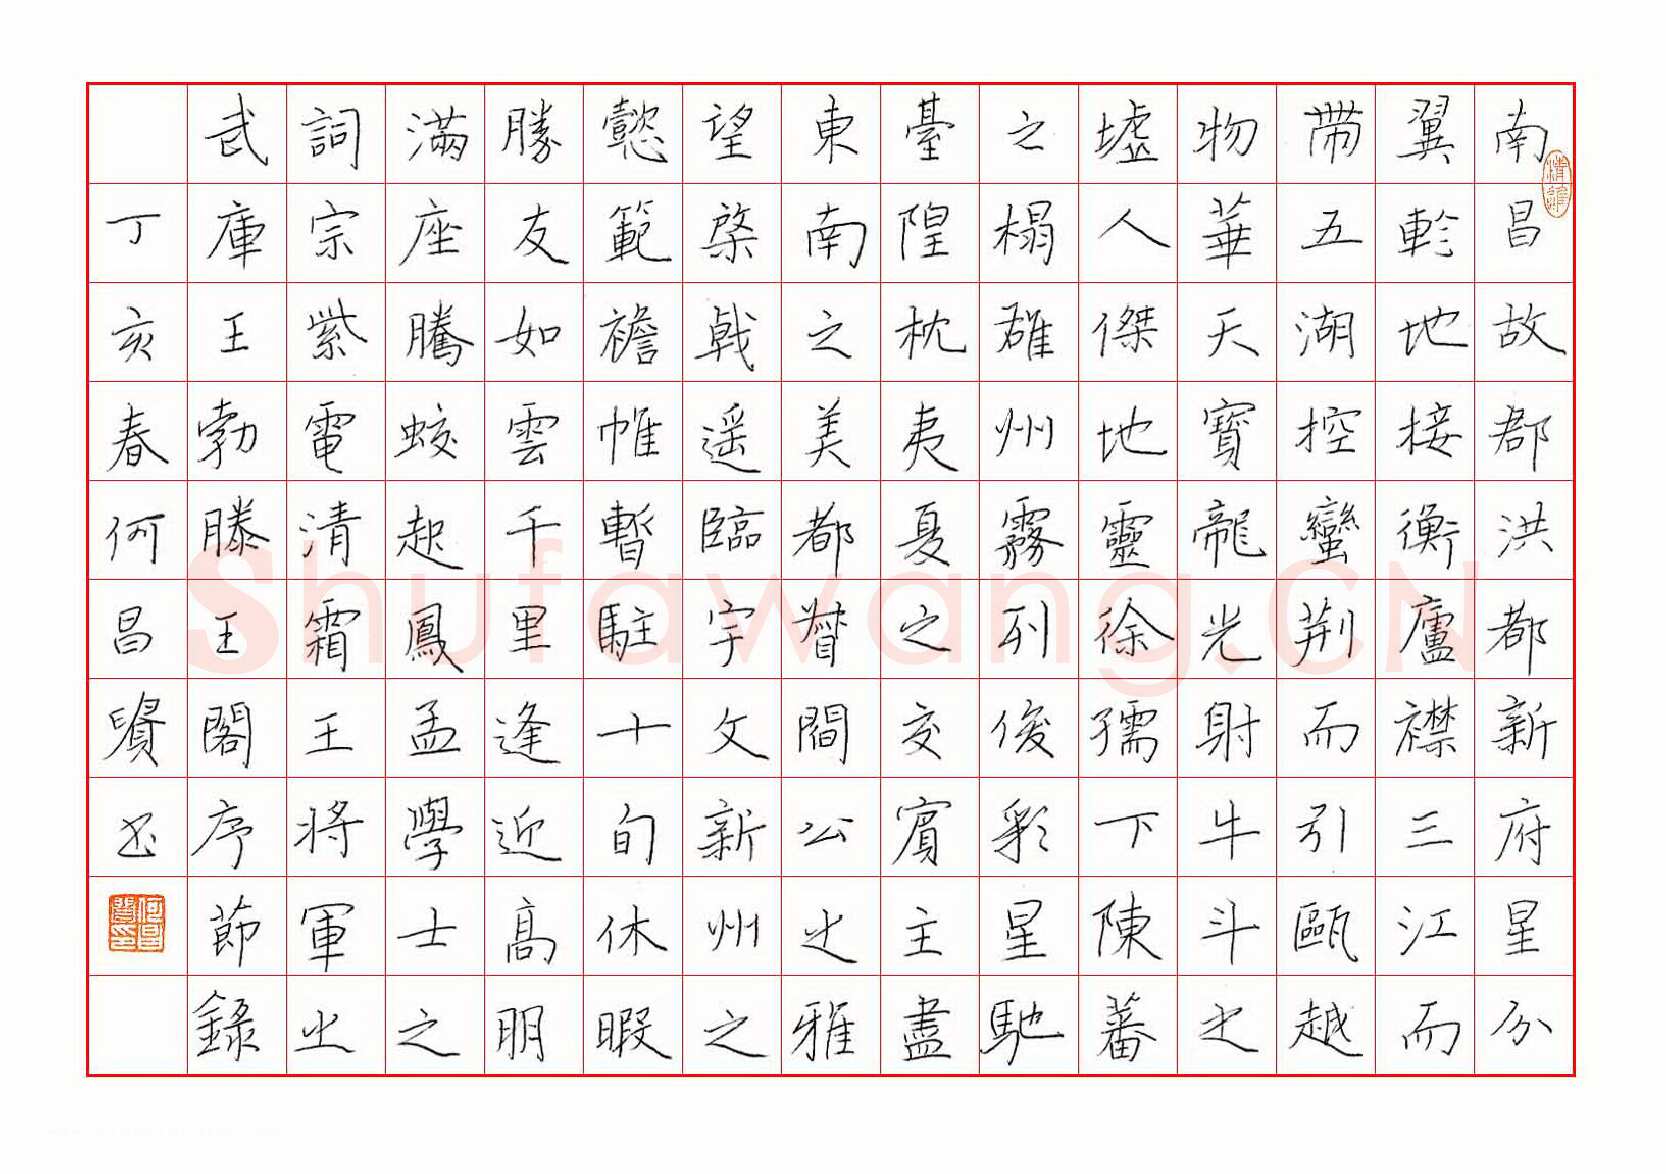 南昌故郡洪都新府星分
翼軫地接衡廬襟三江而
帶五湖控蠻荆而引甌越
物華天寶龍光射牛斗之
墟人傑地靈徐孺下陳蕃
之榻雄州霧列俊彩星馳
臺隍枕夷夏之交賓主盡
東南之美都督閻公之雅
望棨戟遥臨宇文新州之
懿範襜帷暫駐十旬休暇
勝友如雲千里逢近高朋
滿座騰蛟起鳳孟學士之
詞宗紫電清霜王將軍之
武庫王勃滕王閣序節錄
丁亥春何昌书
Shufawang.CN